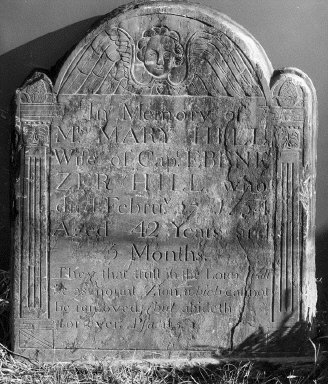 In Memory of
Mrs MARY HILL
Wife of Cap. EBENE
ZER HILL who
died Febru
Aged 42 Years and
5 Months.
They that trust in the Lord
be as mount Zion, which cannot
be removed, but abideth
for ever. Psa: